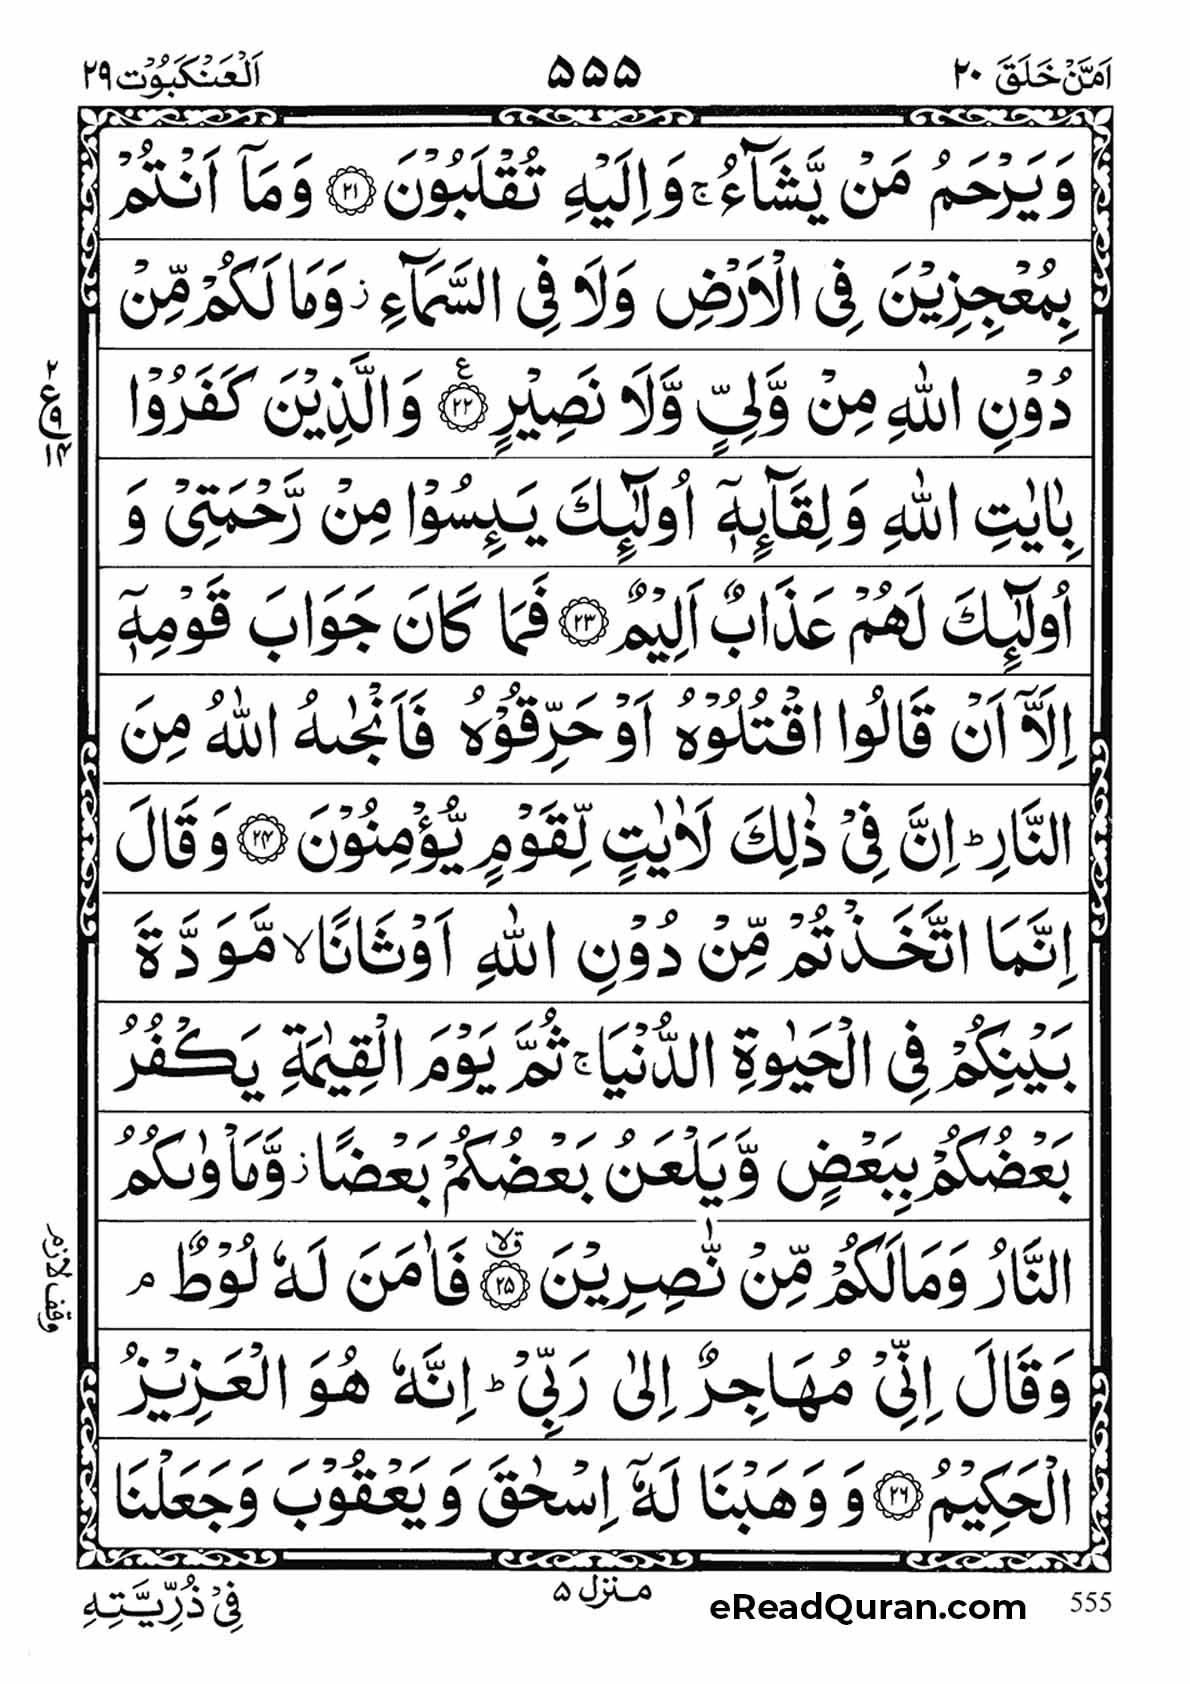 اَمَّنْ خَلَقَ ۲۰ ۵۵۵ اَلْعَنْكَبُوْت ۲۹
وَيَرْحَمُ مَنْ يَّشَآءُ ۚ وَاِلَيْهِ تُقْلَبُوْنَ ﴿۲۱﴾ وَمَآ اَنْتُمْ
بِمُعْجِزِيْنَ فِى الْاَرْضِ وَلَا فِى السَّمَآءِ ز وَمَا لَكُمْ مِّنْ
دُوْنِ اللّٰهِ مِنْ وَّلِىٍّ وَّلَا نَصِيْرٍ ﴿۲۲﴾ ع وَالَّذِيْنَ كَفَرُوْا
۲ ع ۹ ۱۴
بِاٰيٰتِ اللّٰهِ وَلِقَآئِهٖٓ اُولٰٓئِكَ يَئِسُوْا مِنْ رَّحْمَتِىْ وَ
اُولٰٓئِكَ لَهُمْ عَذَابٌ اَلِيْمٌ ﴿۲۳﴾ فَمَا كَانَ جَوَابَ قَوْمِهٖٓ
اِلَّآ اَنْ قَالُوا اقْتُلُوْهُ اَوْ حَرِّقُوْهُ فَاَنْجٰىهُ اللّٰهُ مِنَ
النَّارِ ؕ اِنَّ فِىْ ذٰلِكَ لَاٰيٰتٍ لِّقَوْمٍ يُّؤْمِنُوْنَ ﴿۲۴﴾ وَقَالَ
اِنَّمَا اتَّخَذْتُمْ مِّنْ دُوْنِ اللّٰهِ اَوْثَانًا ۙ مَّوَدَّةَ
بَيْنِكُمْ فِى الْحَيٰوةِ الدُّنْيَا ۚ ثُمَّ يَوْمَ الْقِيٰمَةِ يَكْفُرُ
بَعْضُكُمْ بِبَعْضٍ وَّيَلْعَنُ بَعْضُكُمْ بَعْضًا ز وَّمَاْوٰىكُمُ
النَّارُ وَمَا لَكُمْ مِّنْ نّٰصِرِيْنَ ﴿۲۵﴾ قلا فَاٰمَنَ لَهٗ لُوْطٌ ۘ
وقف لازم
وَقَالَ اِنِّىْ مُهَاجِرٌ اِلٰى رَبِّىْ ؕ اِنَّهٗ هُوَ الْعَزِيْزُ
الْحَكِيْمُ ﴿۲۶﴾ وَ وَهَبْنَا لَهٗٓ اِسْحٰقَ وَ يَعْقُوْبَ وَجَعَلْنَا
فِىْ ذُرِّيَّتِهِ
منزل ۵
eReadQuran.com
555